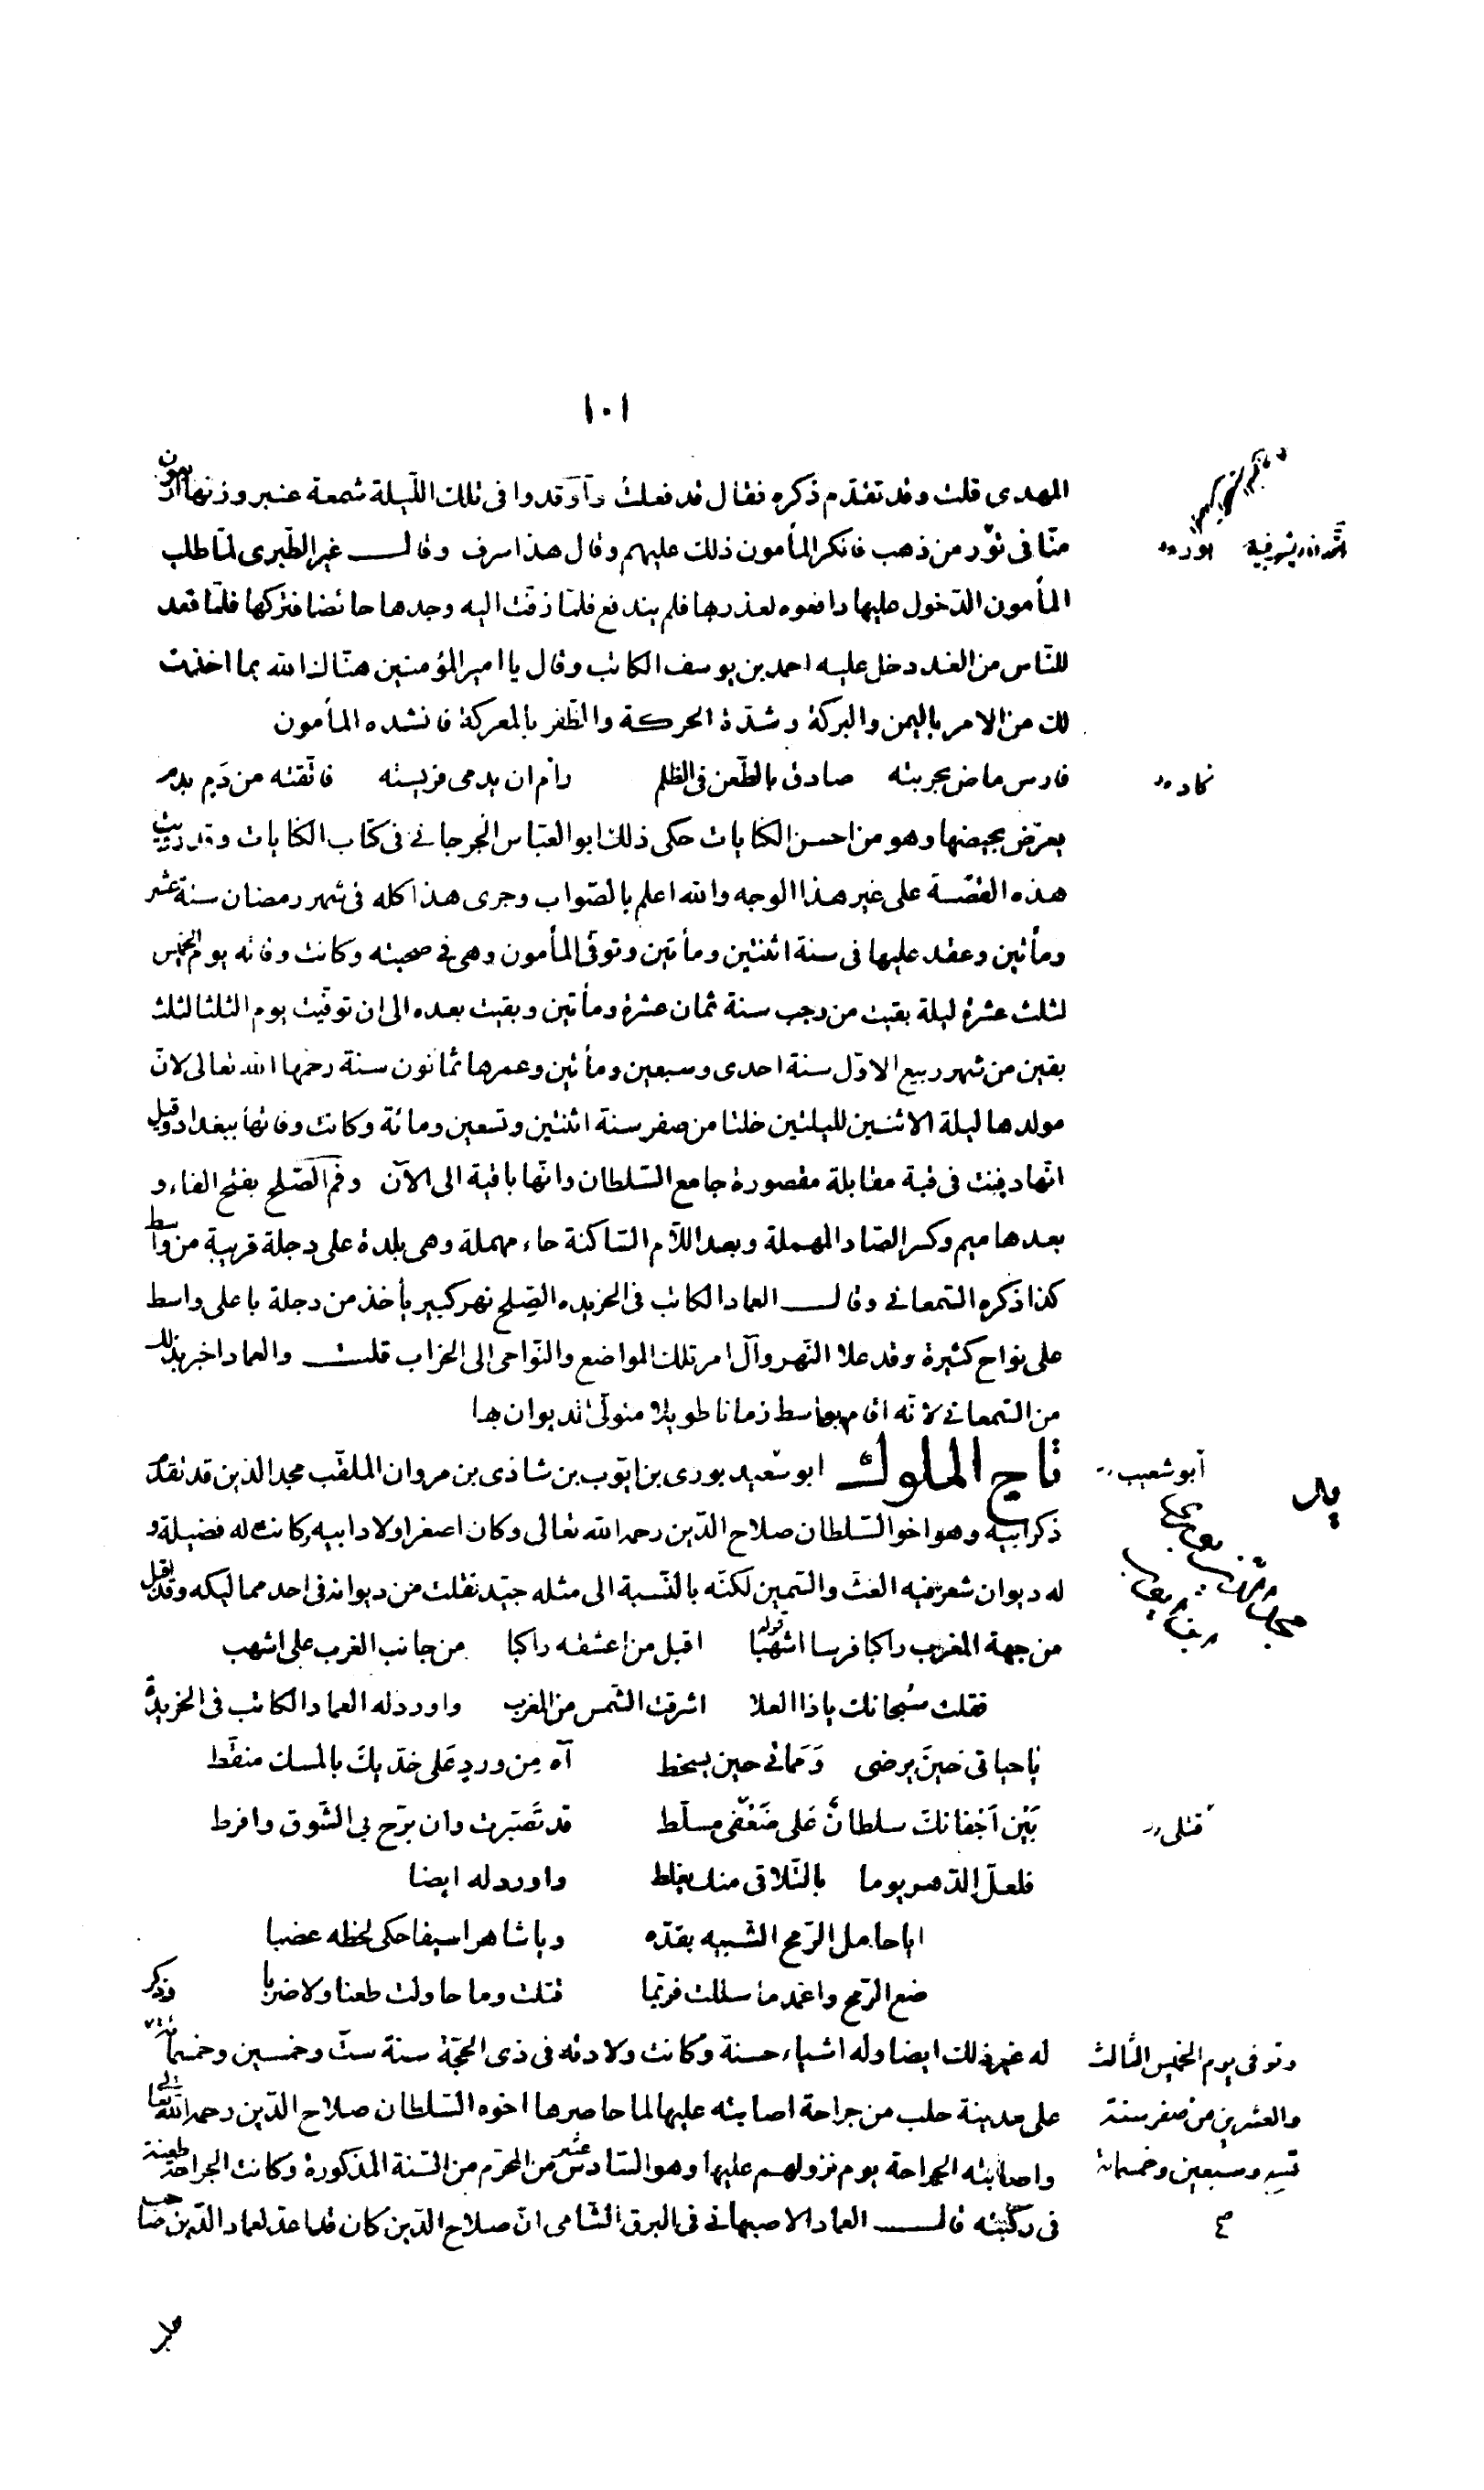 ١٠١
المهدى قلت وقد تقدّم ذكره فقال قد فعلت وأوقدوا فى تلك اللّيلة شمعة عنبر وزنها اربعون
منّا فى تَوْر من ذهب فانكر المأمون ذلك عليهم وقال هذا سرف وقال غير الطّبرى لمّا طلب
المأمون الدّخول عليها دافعوه لعذر بها فلم يندفع فلمّا زفّت اليه وجدها حائضا فتركها فلمّا قعد
للنّاس من الغد دخل عليه احمد بن يوسف الكاتب وقال يا امير المؤمنين هنّاك الله بما اخذت
لك من الامر باليمن والبركة وشدّة الحركة والظّفر بالمعركة فانشده المأمون
فارس ماض بحربته صادق بالطّعن فى الظلم رام ان يدمى فريسته فاتّقته من دَم بدم
كاد
يعرّض بحيضها وهو من احسن الكنايات حكى ذلك ابو العبّاس الجرجانى فى كتاب الكنايات وقد رويت
هذه القصّة على غير هذا الوجه والله اعلم بالصّواب وجرى هذا كله فى شهر رمضان سنة عشر
ومأتين وعقد عليها فى سنة اثنتين ومأتين وتوفّى المأمون وهى فى صحبته وكانت وفاته يوم الخميس
لثلث عشرة ليلة بقيت من رجب سنة ثمان عشرة ومأتين وبقيت بعده الى ان توفّيت يوم الثلثا لثلث
بقين من شهر ربيع الاوّل سنة احدى وسبعين ومأتين وعمرها ثمانون سنة رحمها الله تعالى لانّ
مولدها ليلة الاثنين لليلتين خلتا من صفر سنة اثنتين وتسعين ومائة وكانت وفاتها ببغداد وقيل
انّها دفنت فى قبة مقابلة مقصورة جامع السّلطان وانّها باقية الى الآن وفم الصّلح بفتح الفاء و
بعدها ميم وكسر الصّاد المهملة وبعد اللّام السّاكنة حاء مهملة وهى بلدة على دجلة قريبة من واسط
كذا ذكره السّمعانى وقال العماد الكاتب فى الخريده الصّلح نهر كبير يأخذ من دجلة باعلى واسط
على نواح كثيرة وقد علا النّهر وآل امر تلك المواضع والنّواحى الى الخراب قلت والعماد اخبر بذلك
من السّمعانى لانّه اقام بواسط زمانا طويلا متولّى الديوان بها
تاج الملوك ابو سعيد بورى بن ايّوب بن شاذى بن مروان الملقّب مجد الدّين قد تقدّم
أبو شعيب
ذكر ابيه وهو اخو السّلطان صلاح الدّين رحمه الله تعالى وكان اصغر اولاد ابيه وكانت له فضيلة و
له ديوان شعر فيه الغثّ والسّمين لكنّه بالنّسبة الى مثله جيّد نقلت من ديوانه فى احد مماليكه وقد اقبل
من جهة المغرب راكبا فرسا اشهبا قوله اقبل من اعشقه راكبا من جانب الغرب على اشهب
فقلت سُبحانك ياذا العلا اشرقت الشّمس من المغرب واورد له العماد الكاتب فى الخريدة
ياحياتى حينَ يرضى وَمماتى حين يسخط آه مِن وردٍ عَلى خدّيكَ بالمسك منقّط
بَيْن اَجْفانك سلطانٌ عَلى ضَعْفى مسلّط قد تَصَبّرت وان برّح بى الشّوق وافرط
قتلى
فلعلّ الدّهر يوما بالتّلاقى منك يغلط واورد له ايضا
ايا حامل الرّمح الشّبيه بقدّه ويا شاهرا سيفا حكى لحظه عضبا
ضع الرّمح واغمد ما سللت فربّما قتلت وما حاولت طعنا ولا ضربا وذكر
له غير ذلك ايضا وله اشياء حسنة وكانت ولادته فى ذى الحجّة سنة ستّ وخمسين وخمسمائة
وتوفى يوم الخميس الثالث
والعشرين من صفر سنة
تسع وسبعين وخمسمائة
على مدينة حلب من جراحة اصابته عليها لما حاصرها اخوه السّلطان صلاح الدّين رحمه الله تعالى
واصابته الجراحة يوم نزولهم عليها وهو السّادس عشر من المحرّم من السّنة المذكورة وكانت الجراحة طعنة
فى ركبته قال العماد الاصبهانى فى البرق الشّامى انّ صلاح الدّين كان قد اعدّ لعماد الدّين صاحب